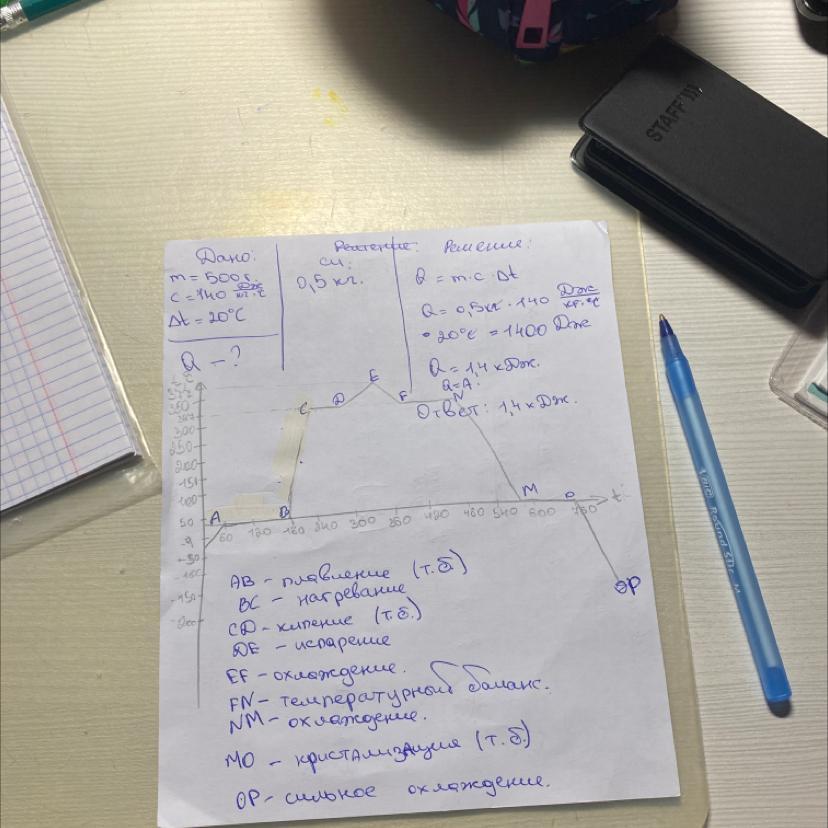 STAFF
Дано:
m = 500 г.
c = 140 Дж/кг·°C
Δt = 20°C
Q – ?
СИ:
0,5 кг.
Решение:
Q = m·c·Δt
Q = 0,5кг · 140 Дж/кг·°C
· 20°C = 1400 Дж
Q = 1,4 кДж.
Q=A:
Ответ: 1,4 кДж.
E
C D F N
A B M O t:
60 120 180 240 300 360 420 480 540 600
350
300
250
200
150
100
50
OP
AB – плавление (т.б)
BC – нагревание
CD – кипение (т.б.)
DE – испарение
EF – охлаждение.
FN – температурный баланс.
NM – охлаждение.
MO – кристализация (т.б.)
OP – сильное охлаждение.